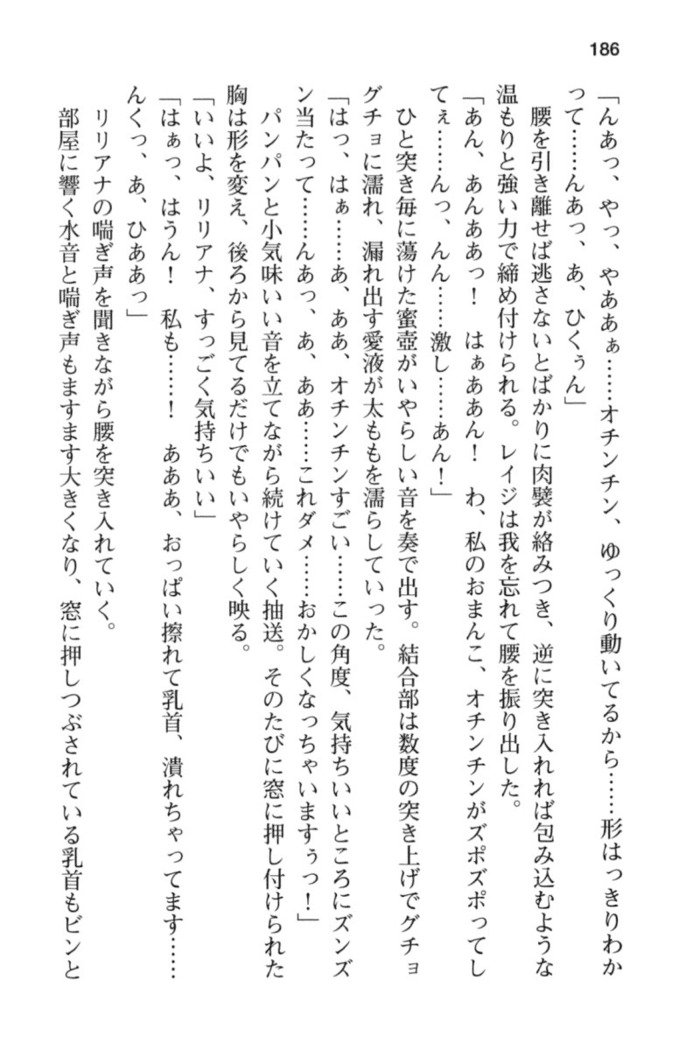 186
「んあっ、やっ、やああぁ……オチンチン、ゆっくり動いてるから……形はっきりわか
って……んあっ、あ、ひくぅん」
腰を引き離せば逃さないとばかりに肉襞が絡みつき、逆に突き入れれば包み込むような
温もりと強い力で締め付けられる。レイジは我を忘れて腰を振り出した。
「あん、あんああっ！　はぁああん！　わ、私のおまんこ、オチンチンがズポズポってし
てぇ……んっ、んん……激し……あん！」
ひと突き毎に蕩けた蜜壺がいやらしい音を奏で出す。結合部は数度の突き上げでグチョ
グチョに濡れ、漏れ出す愛液が太ももを濡らしていった。
「はっ、はぁ……あ、ああ、オチンチンすごい……この角度、気持ちいいところにズンズ
ン当たって……んあっ、あ、ああ……これダメ……おかしくなっちゃいますぅっ！」
パンパンと小気味いい音を立てながら続けていく抽送。そのたびに窓に押し付けられた
胸は形を変え、後ろから見てるだけでもいやらしく映る。
「いいよ、リリアナ、すっごく気持ちいい」
「はぁっ、はうん！　私も……！　あああ、おっぱい擦れて乳首、潰れちゃってます……
んくっ、あ、ひああっ」
リリアナの喘ぎ声を聞きながら腰を突き入れていく。
部屋に響く水音と喘ぎ声もますます大きくなり、窓に押しつぶされている乳首もビンと